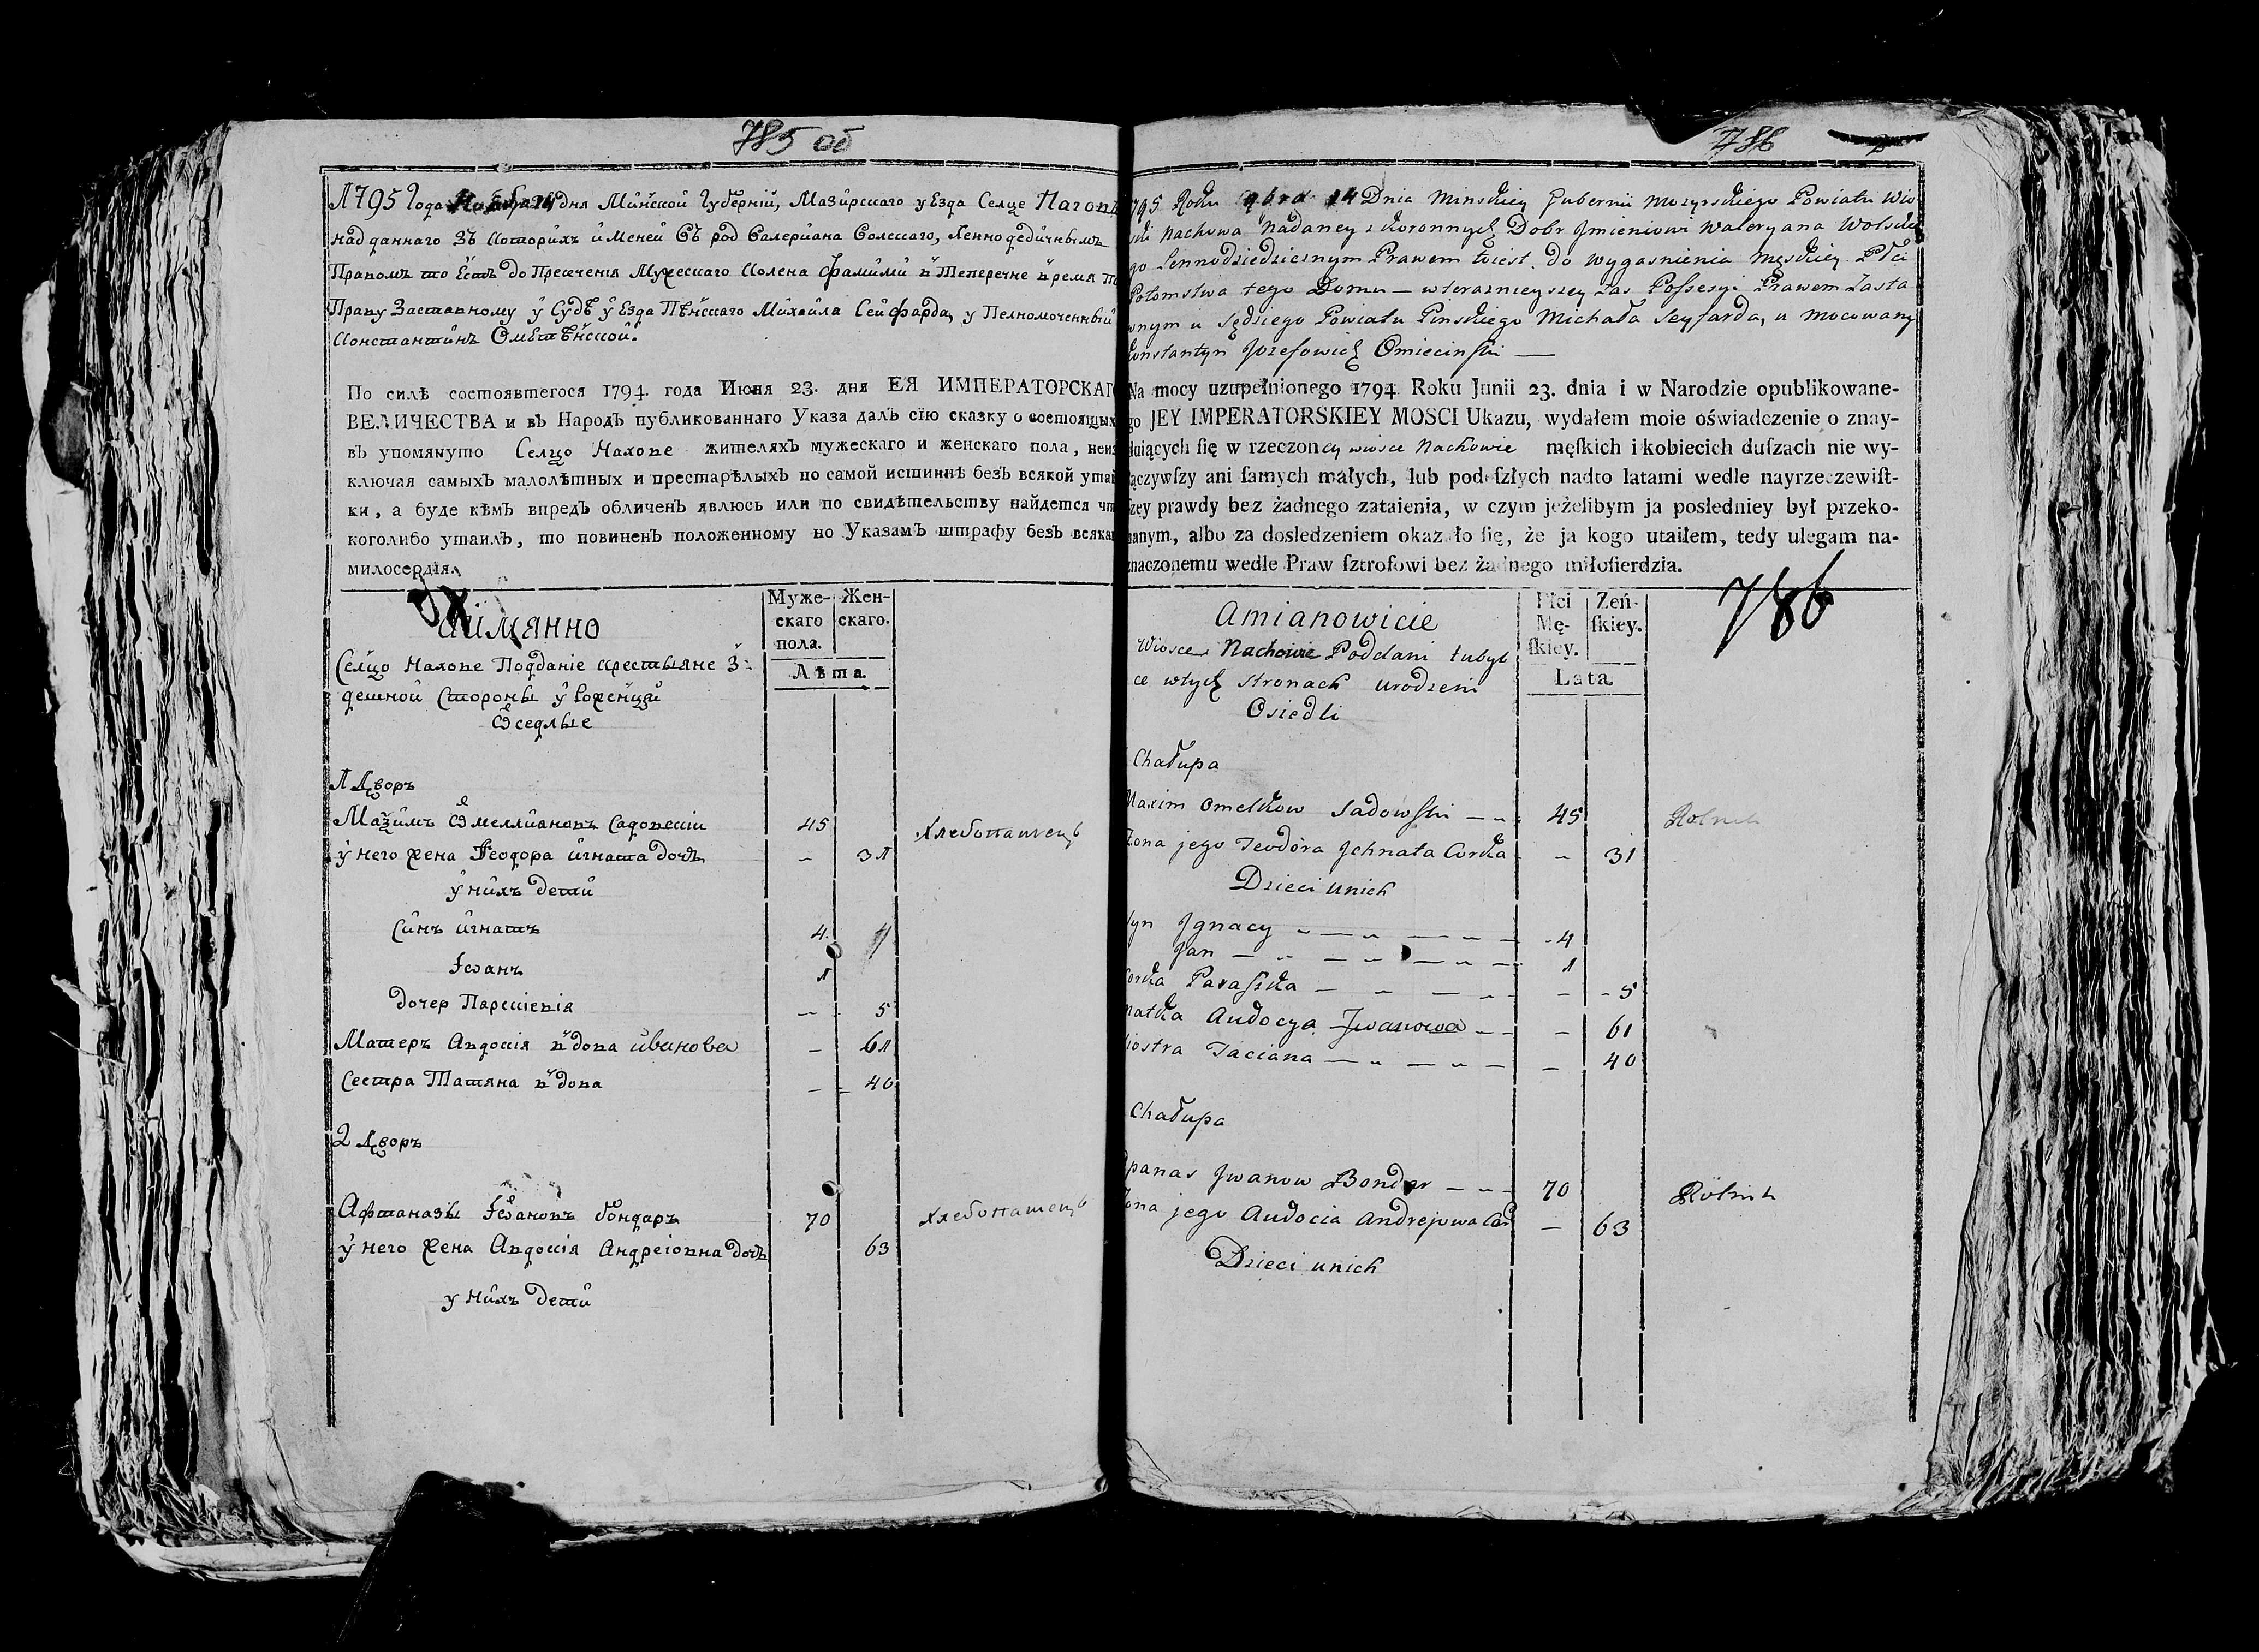 785 об
1795 Года Ноября 14 дня Минской Губерніи, Мазирскаго уезда Селце Нагов
над даннаго Зъ Которихъ имений Съ род Валериана Волскаго, Ленно дедичнымъ
Правомъ то Естъ до Пресеченія Мужескаго Колена Фамили в Теперечне время По
Праву Заставному у Судѣ уезда Пѣнскаго Михайла Сейфарда, у Полномоченный
Константинъ Омѣтѣнской.
По силѣ состоявтегося 1794 года Июня 23. дня ЕЯ ИМПЕРАТОРСКАГО
ВЕЛИЧЕСТВА и въ Народъ публикованнаго Указа далъ сію сказку о состоящихъ
въ упомянуто Селцо Нахове жителяхъ мужескаго и женскаго пола, неиз
ключая самыхъ малолѣтныхъ и престарѣлыхъ по самой истиннѣ безъ всякой утай
ки, а буде кѣмъ впредъ обличенъ явлюсь или по свидѣтельству найдется чт
коголибо утаилъ, то повиненъ положенному по Указамъ штрафу безъ всякаг
милосердія.
Аимянно
Муже- Жен-
скаго скаго.
пола.
Лѣта.
Селцо Нахове Подданіе крестьяне З
дешной Стороны уроженци
Оседлые
1 Дворъ
Мазимъ Омеллиановъ Садовскіи 45 Хлебопашецъ
у него жена Феодора игната дочъ - 31
у нихъ дети
Синъ игнатъ 4
Іванъ 1
дочер Парскіевія - 5
Матерь Авдокія вдова иванова - 61
Сестра Татяна вдова - 40
2 Дворъ
Афтаназы Івановъ бондаръ 70 Хлебопашецъ
у него жена Авдокія Андреіовна дочъ 63
у нихъ дети
786
795 Roku 9bra 14 Dnia Minskiey Gubernii Mozyrskiego Powiatu Wio
ski Nachowa Nadaney z Koronnych Dobr Jmieniowi Waleryana Wolskie
go Lennodziedzicznym Prawem toiest do wygasnienia męskiey Płci
Potomstwa tego Domu — w teraznieyszey zas Possesyi Prawem Zasta
wnym u Sędziego Powiatu Pinskiego Michała Seyfarda, u mocowany
Konstantyn Jozefowicz Omiecinski —
Na mocy uzupełnionego 1794 Roku Junii 23. dnia i w Narodzie opublikowane-
go JEY IMPERATORSKIEY MOSCI Ukazu, wydałem moie oświadczenie o znay-
duiących ſię w rzeczoney wiosce Nachowie męſkich i kobiecich duſzach nie wy-
łączywſzy ani ſamych małych, lub podeſzłych nadto latami wedle nayrzeczewiſt-
ſzey prawdy bez żadnego zataienia, w czym jeżelibym ja posledniey był przeko-
nanym, albo za dosledzeniem okazało ſię, że ja kogo utaiłem, tedy ulegam na-
znaczonemu wedle Praw ſztrofowi bez żadnego miłoſierdzia.
Amianowicie
Płci Żeń-
Mę- ſkiey.
ſkiey.
Lata.
786
Wiosce Nachowie Poddani tubyl
ce w tych stronach urodzeni
Osiedli
Chałupa
Maxim Omelkow Sadowſki 45 Rolnik
Zona jego Teodora Jehnata Corka - 31
Dzieci unich
Syn Jgnacy - 4
Jan 1
Corka Paraſzka - 5
Matka Audocya Jwanowa - 61
Siostra Taciana - 40
Chałupa
Apanas Jwanow Bondar 70 Rolnik
Zona jego Audocia Andrejowa Cor - 63
Dzieci unich